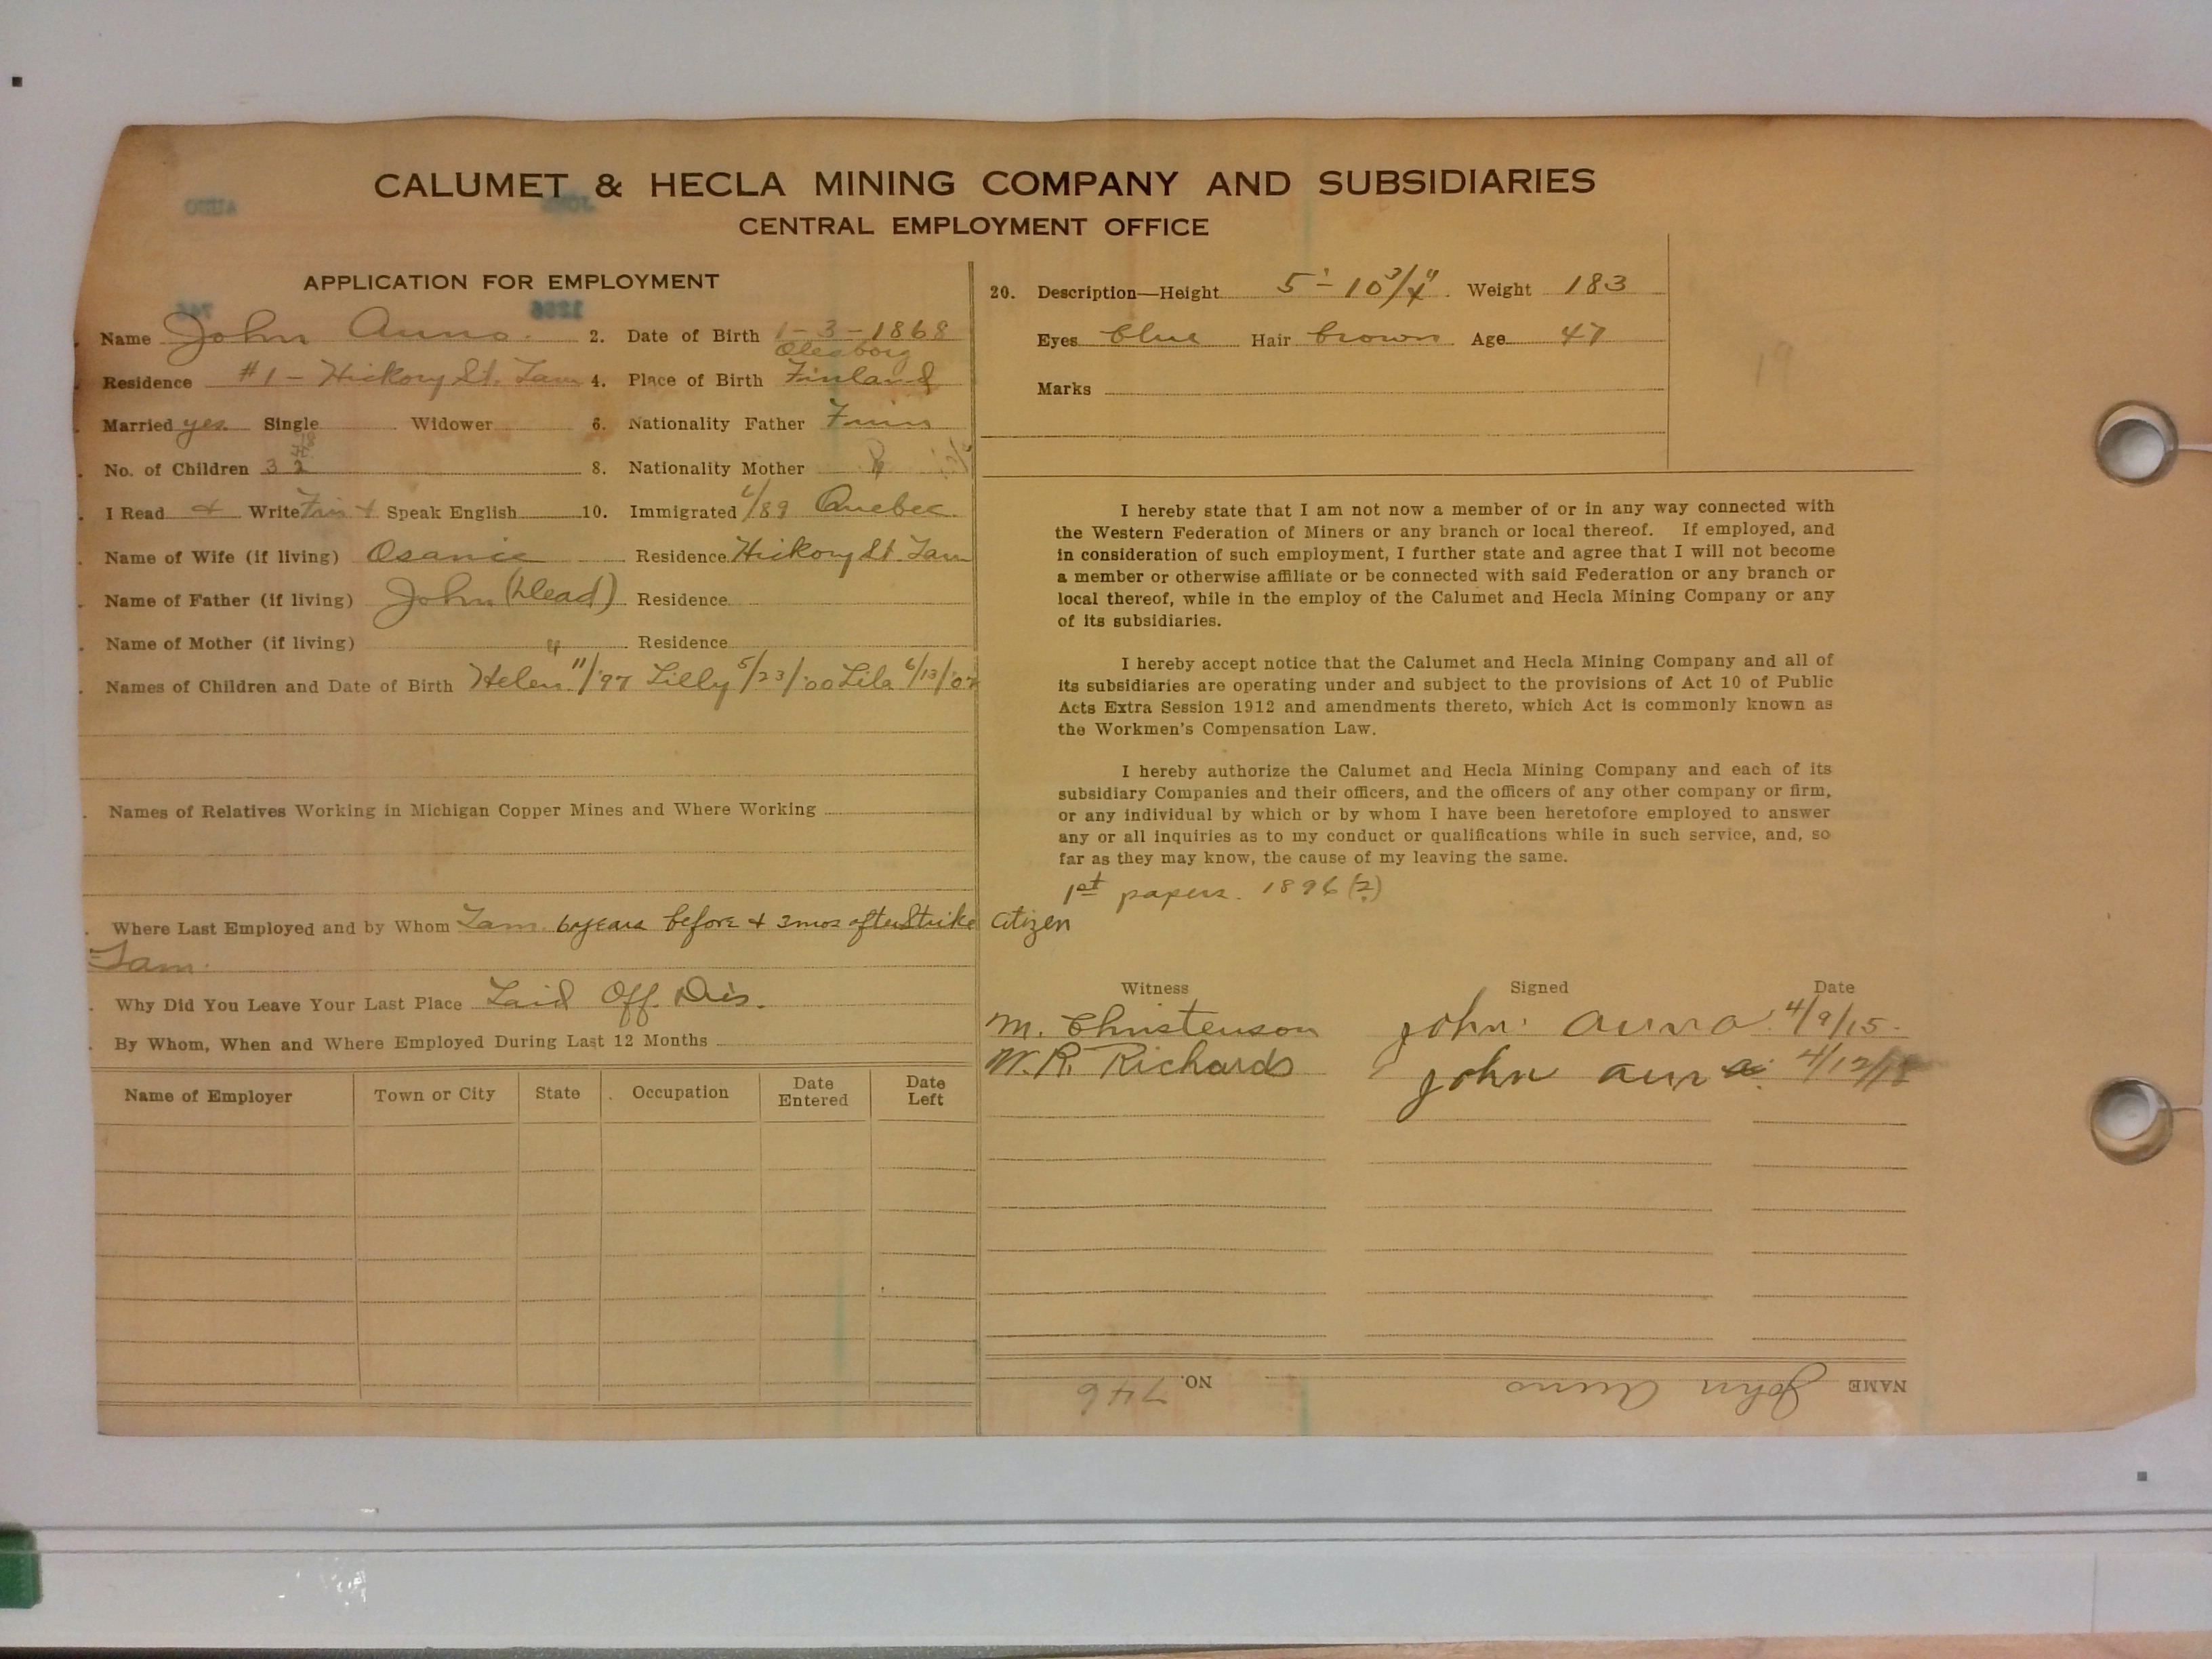 CALUMET & HECLA MINING COMPANY AND SUBSIDIARIES
CENTRAL EMPLOYMENT OFFICE
APPLICATION FOR EMPLOYMENT
Name John Auno. 2. Date of Birth 1-3-1868
Residence #1 - Hickory St. Tam 4. Place of Birth Oleaborg Finland
Married yes Single Widower 6. Nationality Father Finn
No. of Children 3 2 8. Nationality Mother "
I Read & Write Fin & Speak English 10. Immigrated 6/89 Quebec.
Name of Wife (if living) Osanie Residence Hickory St. Tam
Name of Father (if living) John (Dead) Residence
Name of Mother (if living) " Residence
Names of Children and Date of Birth Helen 11/'97 Lilly 5/23/'00 Lila 6/13/'02
Names of Relatives Working in Michigan Copper Mines and Where Working
Where Last Employed and by Whom Tam. 6 years before & 3 mos after Strike
Tam.
Why Did You Leave Your Last Place Laid Off. Dis.
By Whom, When and Where Employed During Last 12 Months
Name of Employer Town or City State Occupation Date Entered Date Left
20. Description—Height 5'-10 3/4" Weight 183
Eyes blue Hair brown Age 47
Marks
19
I hereby state that I am not now a member of or in any way connected with
the Western Federation of Miners or any branch or local thereof. If employed, and
in consideration of such employment, I further state and agree that I will not become
a member or otherwise affiliate or be connected with said Federation or any branch or
local thereof, while in the employ of the Calumet and Hecla Mining Company or any
of its subsidiaries.
I hereby accept notice that the Calumet and Hecla Mining Company and all of
its subsidiaries are operating under and subject to the provisions of Act 10 of Public
Acts Extra Session 1912 and amendments thereto, which Act is commonly known as
the Workmen's Compensation Law.
I hereby authorize the Calumet and Hecla Mining Company and each of its
subsidiary Companies and their officers, and the officers of any other company or firm,
or any individual by which or by whom I have been heretofore employed to answer
any or all inquiries as to my conduct or qualifications while in such service, and, so
far as they may know, the cause of my leaving the same.
1st papers. 1896 (?)
Citizen
Witness Signed Date
M. Christenson John Auno 4/9/15.
W. R. Richards John Auno 4/12/18
NAME John Auno NO. 746